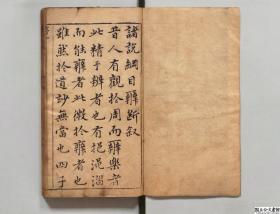 諸說綱目辭斷叙
昔人有觀於周而辭樂者
此精于辨者也有挹澠淄
而能辭者此微於辭者也
雖然於道訬無當也四子